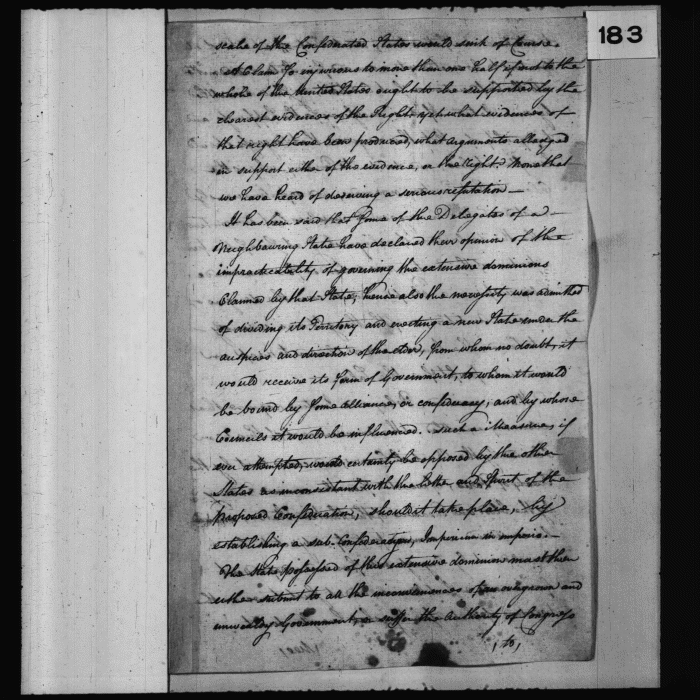 183
scale of the Confederated States would sink of Course.
A Claim so injurious to more than one half if not to the
whole of the United States ought to be supported by the
clearest evidences of the Right. yet what evidences of
that right have been produced, what arguments alledged
in support either of the evidence, or the Right. None that
we have heard of deserving a serious refutation —
It has been said that some of the Delegates of a
Neighbouring State have declared their opinion of the
impracticability of governing the extensive dominions
Claimed by that State; hence also the necessity was admitted
of dividing its Territory and erecting a new State under the
auspices and direction of the elder, from whom no doubt, it
would receive its form of Government, to whom it would
be bound by some alliance, or confideracy, and by whose
Councils it would be influenced. such a Measure, if
ever attempted, would certainly be opposed by the other
States as inconsistant with the Letter and Spirit of the
proposed Confideration, should it take place, by
establishing a sub. Confideration, Imperium in imperio. —
The State possessed of this extensive dominion must then
either submit to all the inconveniences of an overgrown and
unwealdy Government, or suffer the Authority of Congress
to,